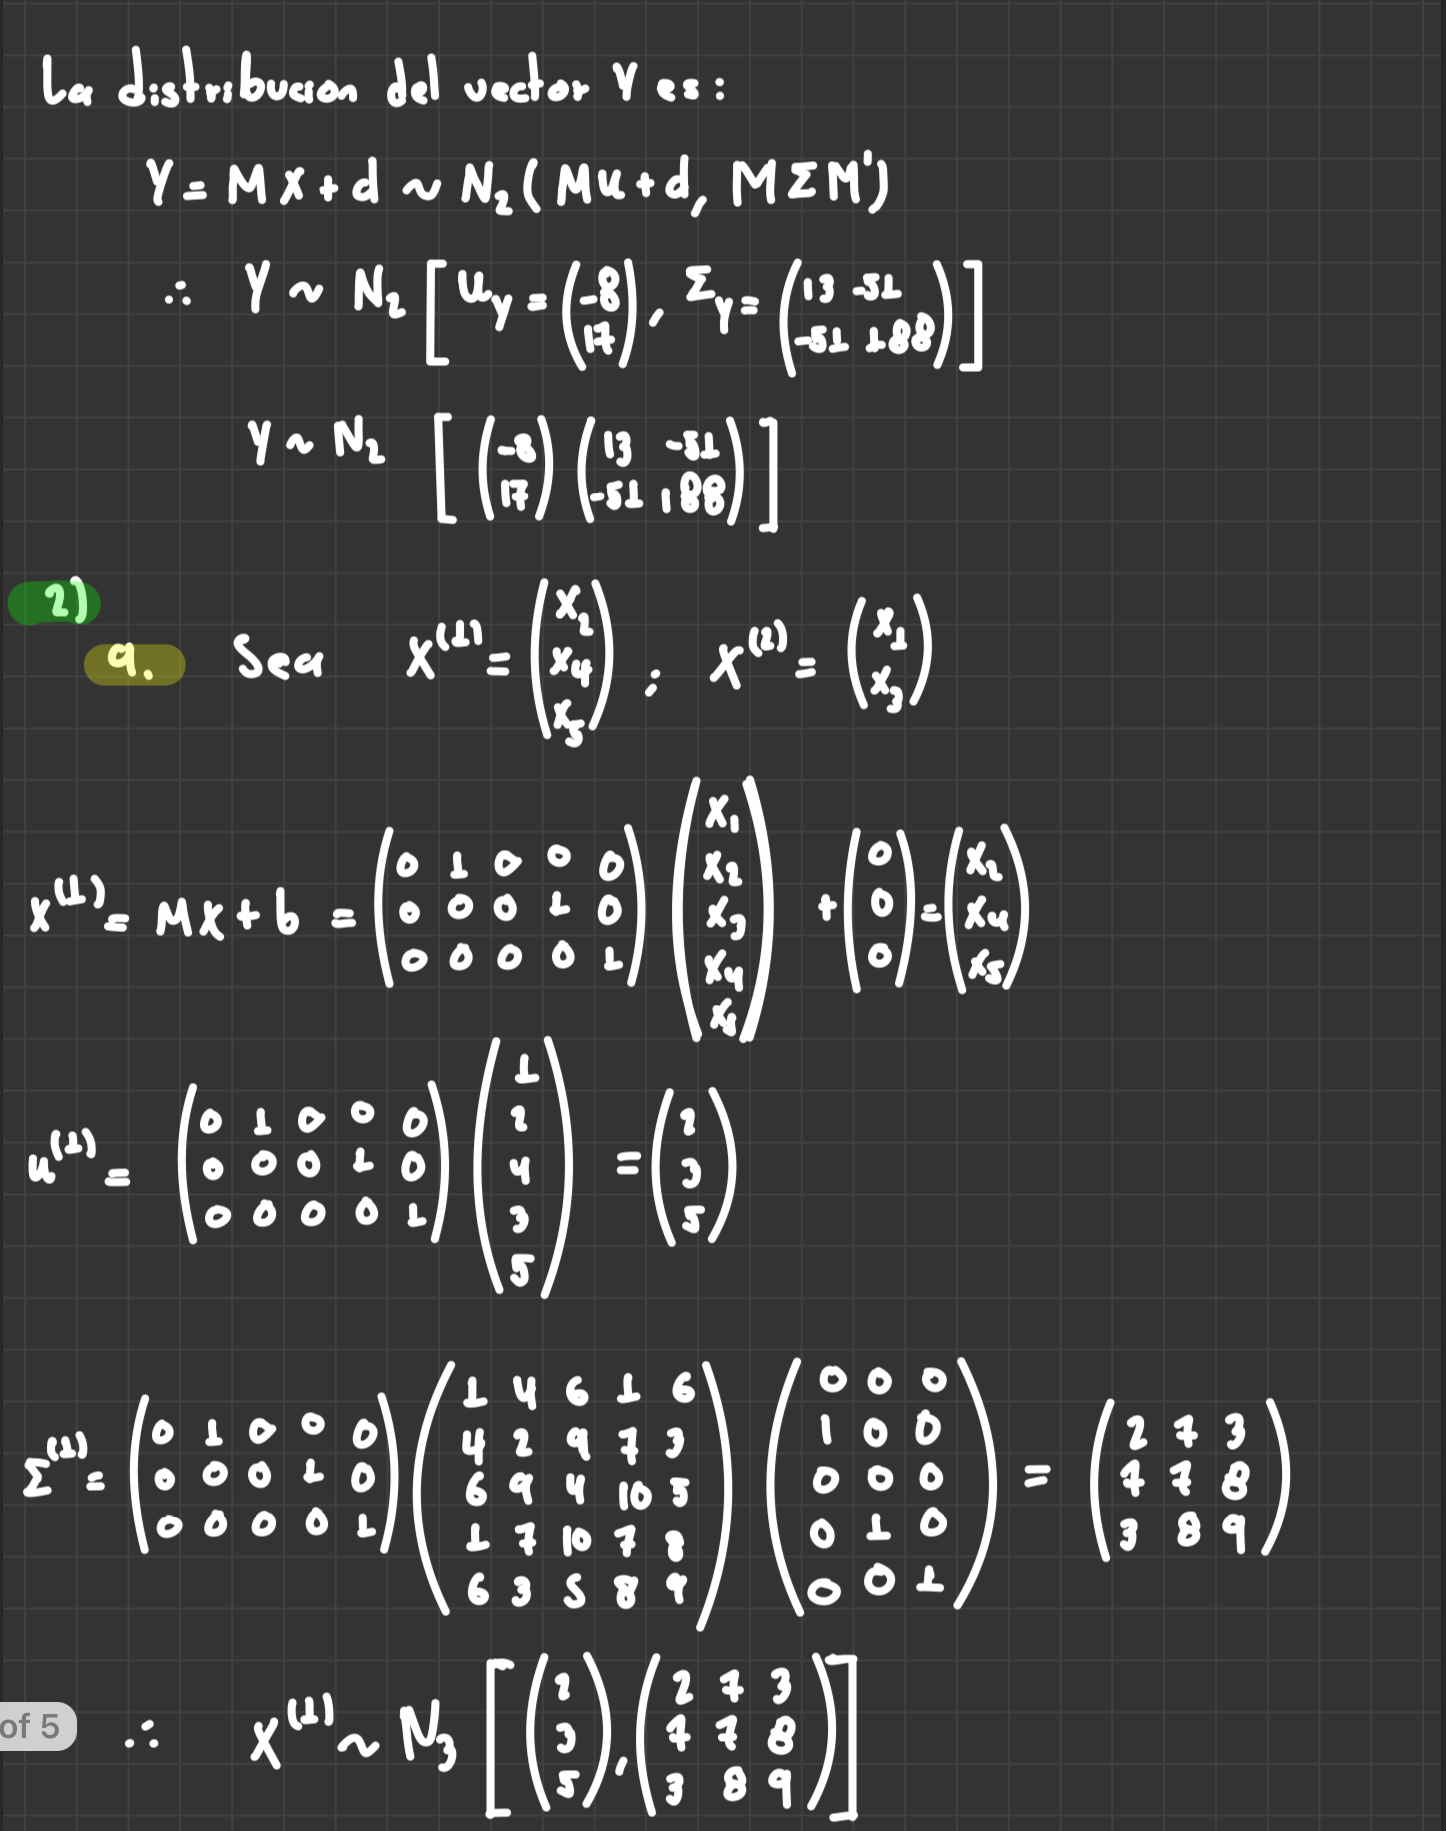 La distribucion del vector Y es:
Y = MX + d ~ N₂ ( Mu + d, MΣM')
∴ Y ~ N₂ [ u_Y = (-8 17), Σ_Y = (13 -51 -51 188) ]
Y ~ N₂ [ (-8 17) (13 -51 -51 188) ]
2)
a. Sea X⁽¹⁾ = (X₂ X₄ X₅) ; X⁽²⁾ = (X₁ X₃)
X⁽¹⁾ = MX + b = (0 1 0 0 0 0 0 0 1 0 0 0 0 0 1) (X₁ X₂ X₃ X₄ X₅) + (0 0 0) = (X₂ X₄ X₅)
u⁽¹⁾ = (0 1 0 0 0 0 0 0 1 0 0 0 0 0 1) (1 2 4 3 5) = (2 3 5)
Σ⁽¹⁾ = (0 1 0 0 0 0 0 0 1 0 0 0 0 0 1) (1 4 6 1 6 4 2 9 7 3 6 9 4 10 5 1 7 10 7 8 6 3 5 8 9) (0 0 0 1 0 0 0 0 0 0 1 0 0 0 1) = (2 7 3 7 7 8 3 8 9)
of 5
∴ X⁽¹⁾ ~ N₃ [ (2 3 5), (2 7 3 7 7 8 3 8 9) ]